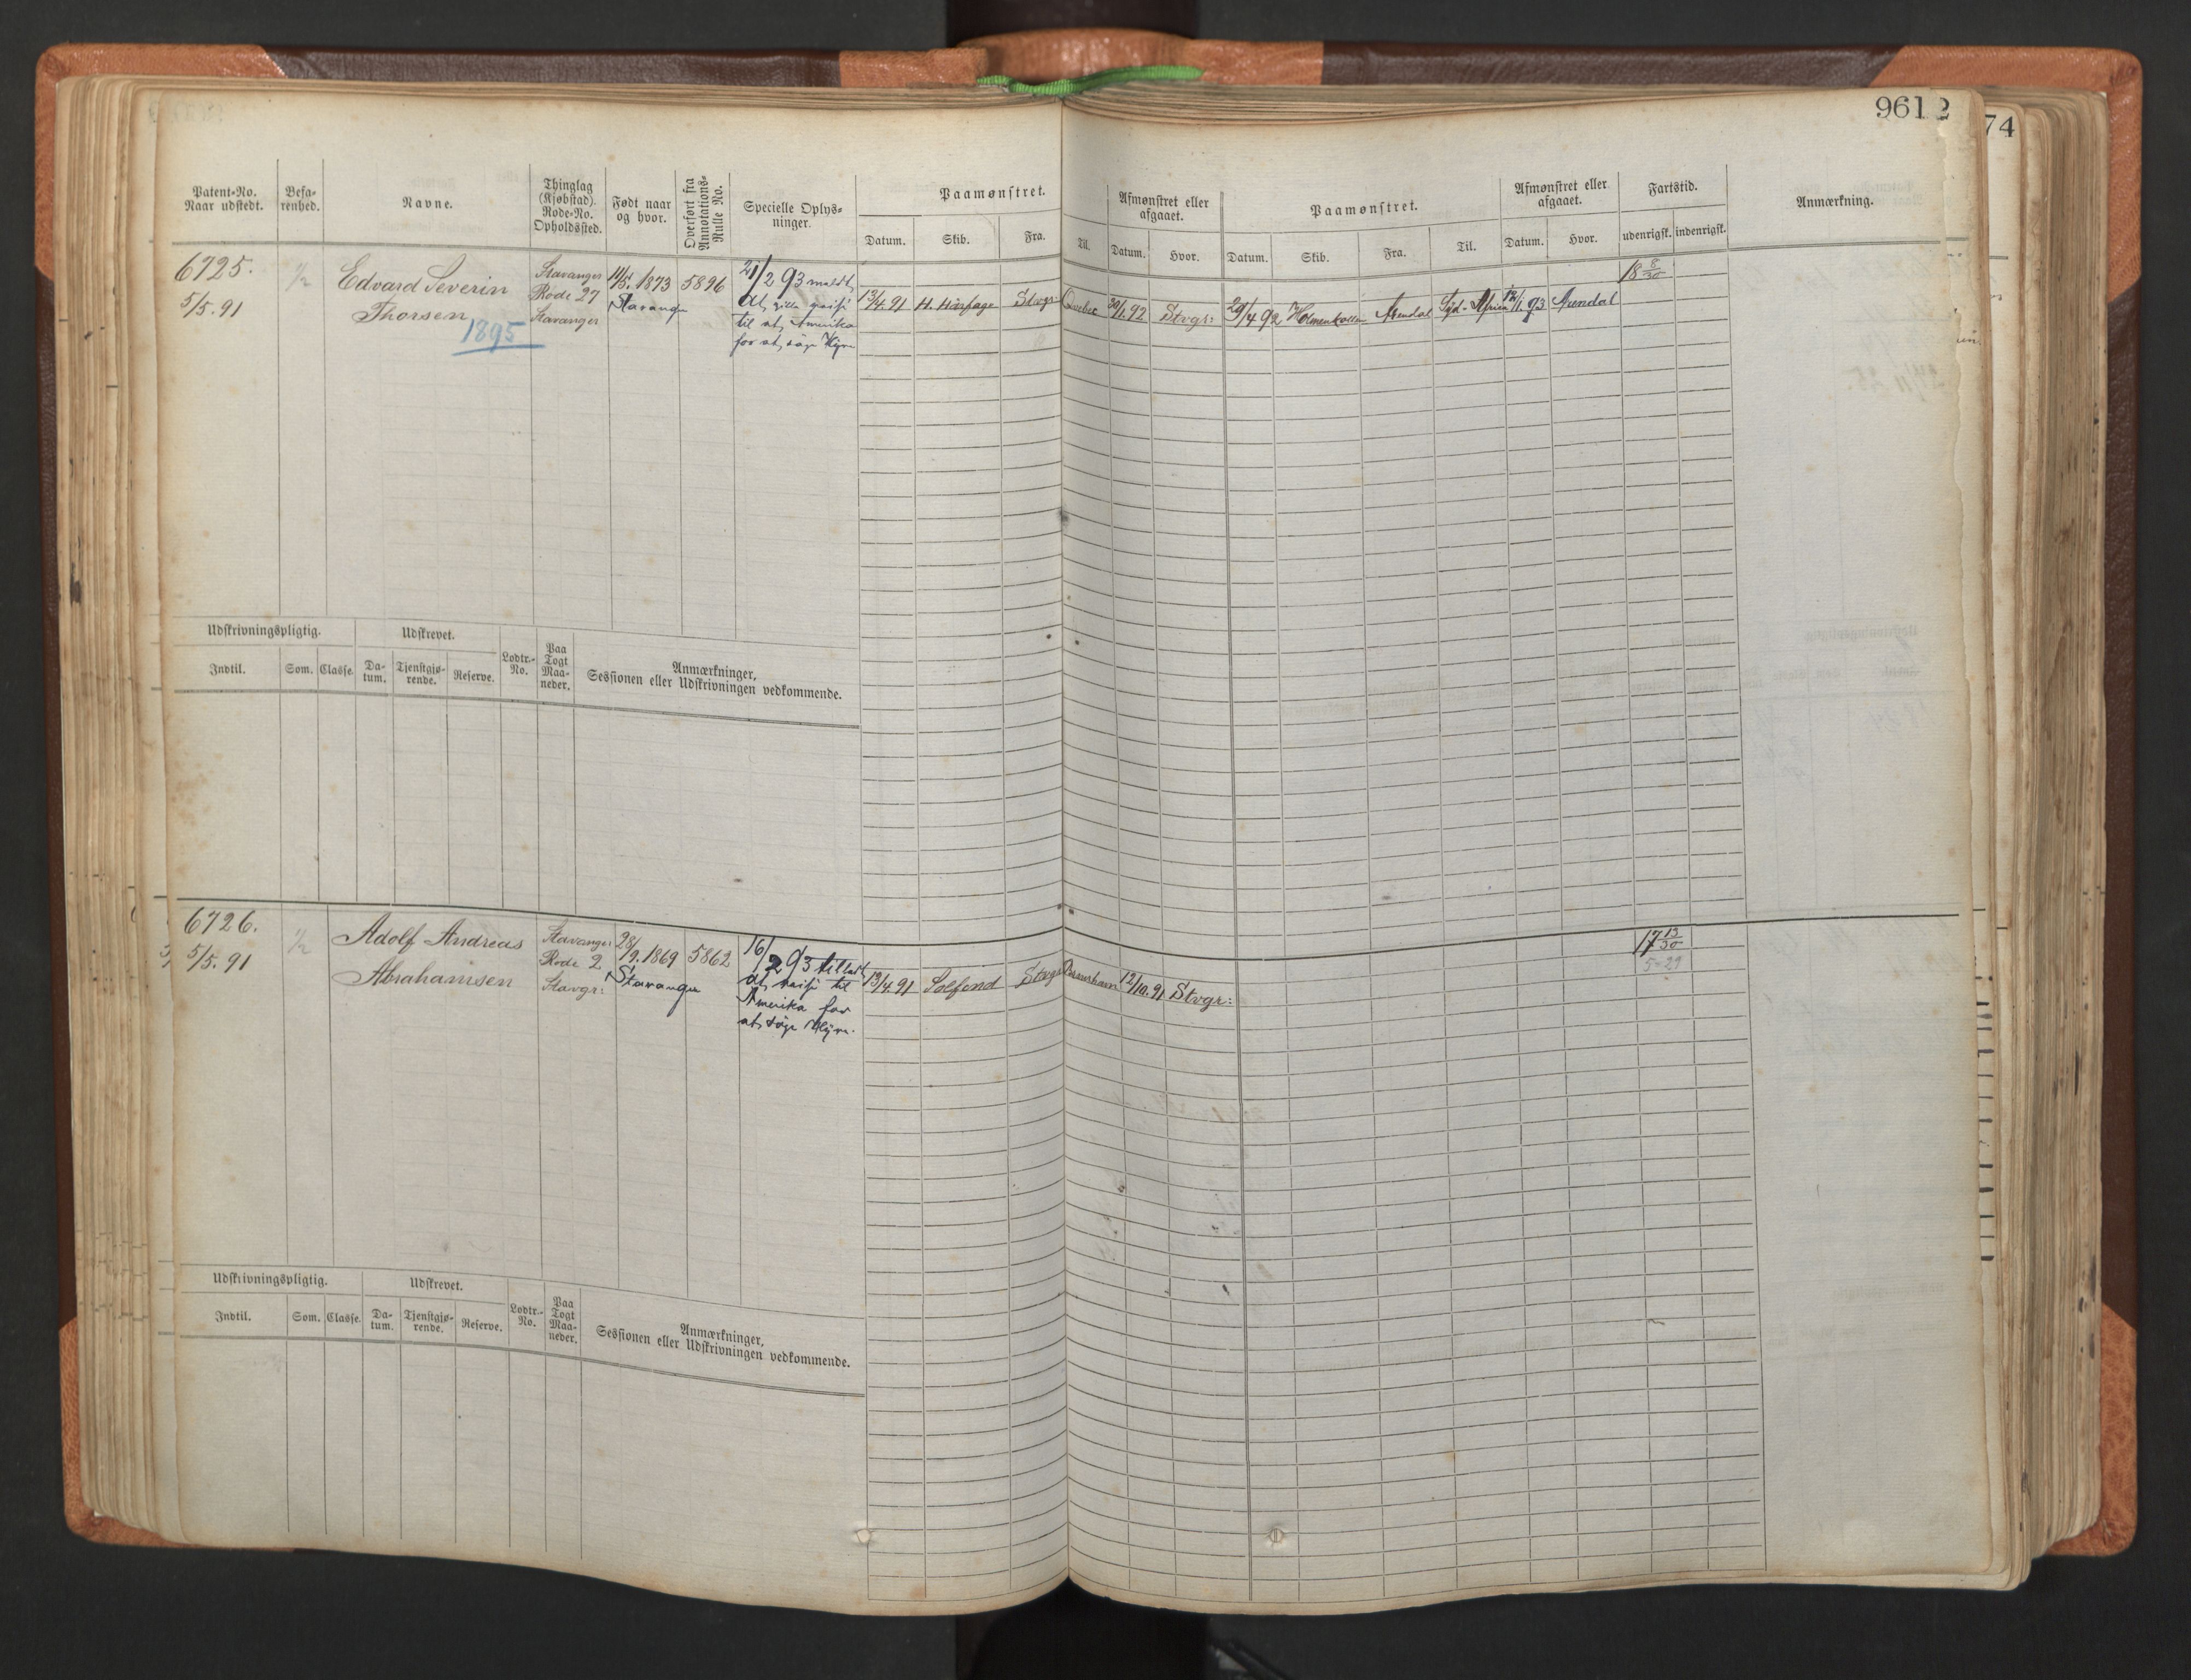 9612
74
Patent-No. Naar udstedt.
Befa-renhed.
Navne.
Thinglag (Kjøbstad). Rode-No. Opholdssted.
Født naar og hvor.
Overført fra Annotations-Rulle No.
Specielle Oplys-ninger.
Paamønstret.
Datum. Skib. Fra. Til.
Afmønstret eller afgaaet.
Datum. Hvor.
Paamønstret.
Datum. Skib. Fra. Til.
Afmønstret eller afgaaet.
Datum. Hvor.
Fartstid.
udenrigsk. indenrigsk.
Anmærkning.
6725.
5/5.91
1/2
Edvard Severin
Thorsen
1895
Stavanger
Rode 27
Stavanger
11/5. 1873
Stavanger
5896
21/2 93 meldt,
at, ville reise
til at, Amerika
for at, søge Hyre
13/4.91 H. Hårfage Stvgr: Quebec 30/1.92 Stvgr: 29/4 92 Holmenkollen Arendal Syd-Afrika 12/1.93 Arendal
18 8/30
Udskrivningspligtig.
Indtil. Som. Classe.
Udskrevet.
Da-tum. Tjenstgjø-rende. Reserve.
Lodtr.-No.
Paa Togt Maa-neder.
Anmærkninger,
Sessionen eller Udskrivningen vedkommende.
6726.
5/5.91
1/2
Adolf Andreas
Abrahamsen
Stavanger
Rode 2
Stavgr:
28/9. 1869
Stavanger
5862
16/2 93 tilladt,
at, reise til
Amerika for
at, søge Hyre.
13/4.91 Solfend Stvgr 12/10.91 Stvgr:
17 13/30
5-29
Udskrivningspligtig.
Indtil. Som. Classe.
Udskrevet.
Da-tum. Tjenstgjø-rende. Reserve.
Lodtr.-No.
Paa Togt Maa-neder.
Anmærkninger,
Sessionen eller Udskrivningen vedkommende.